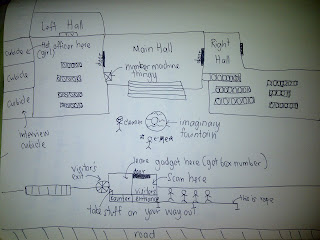 Left Hall
Hot officer here
(girl)
Cubicle
Cubicle
Cubicle
interview
cubicle
number machine
thingy
Main Hall
Right
Hall
imaginary
fountain
leave gadget here (got box number)
visitor's
exit
Scan here
Counter
visitors
entrance
this is rope
take stuff on your way out
road